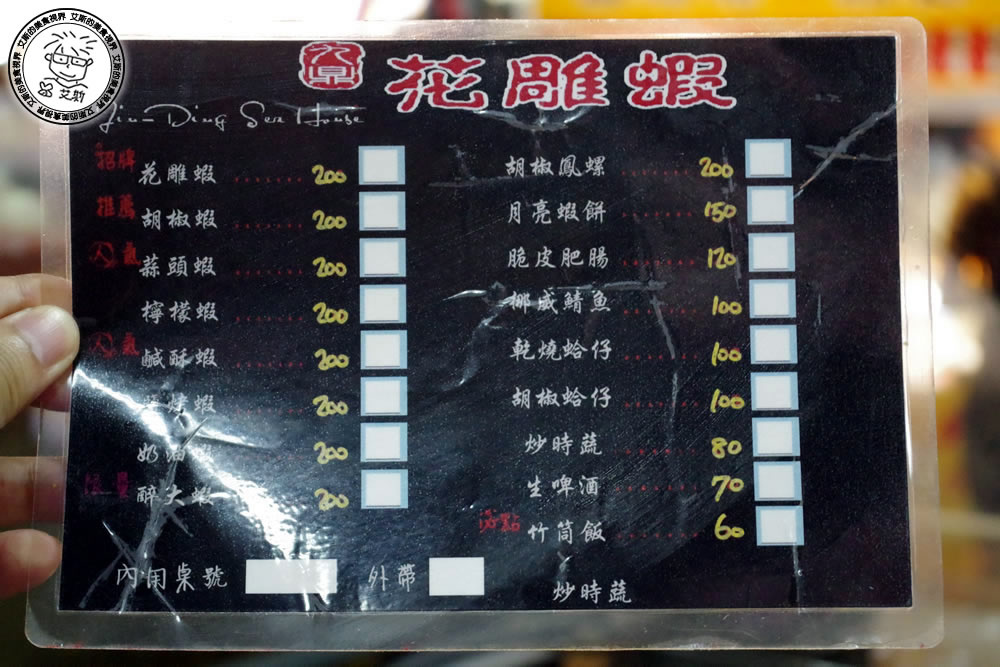 艾斯的美食視界 艾斯的美食視界 艾斯的美食視界
艾斯
花雕蝦
Jin-Ding Sea House
招牌 花雕蝦 ........ 200
推薦 胡椒蝦 ........ 200
人氣 蒜頭蝦 ........ 200
檸檬蝦 ........ 200
人氣 鹹酥蝦 ........ 200
烤蝦 ........ 200
奶油 ........ 200
限量 醉大蝦 ........ 200
內用桌號
外帶
胡椒鳳螺 ........ 200
月亮蝦餅 ........ 150
脆皮肥腸 ........ 120
挪威鯖魚 ........ 100
乾燒蛤仔 ........ 100
胡椒蛤仔 ........ 100
炒時蔬 ........ 80
生啤酒 ........ 70
必點 竹筒飯 ........ 60
炒時蔬